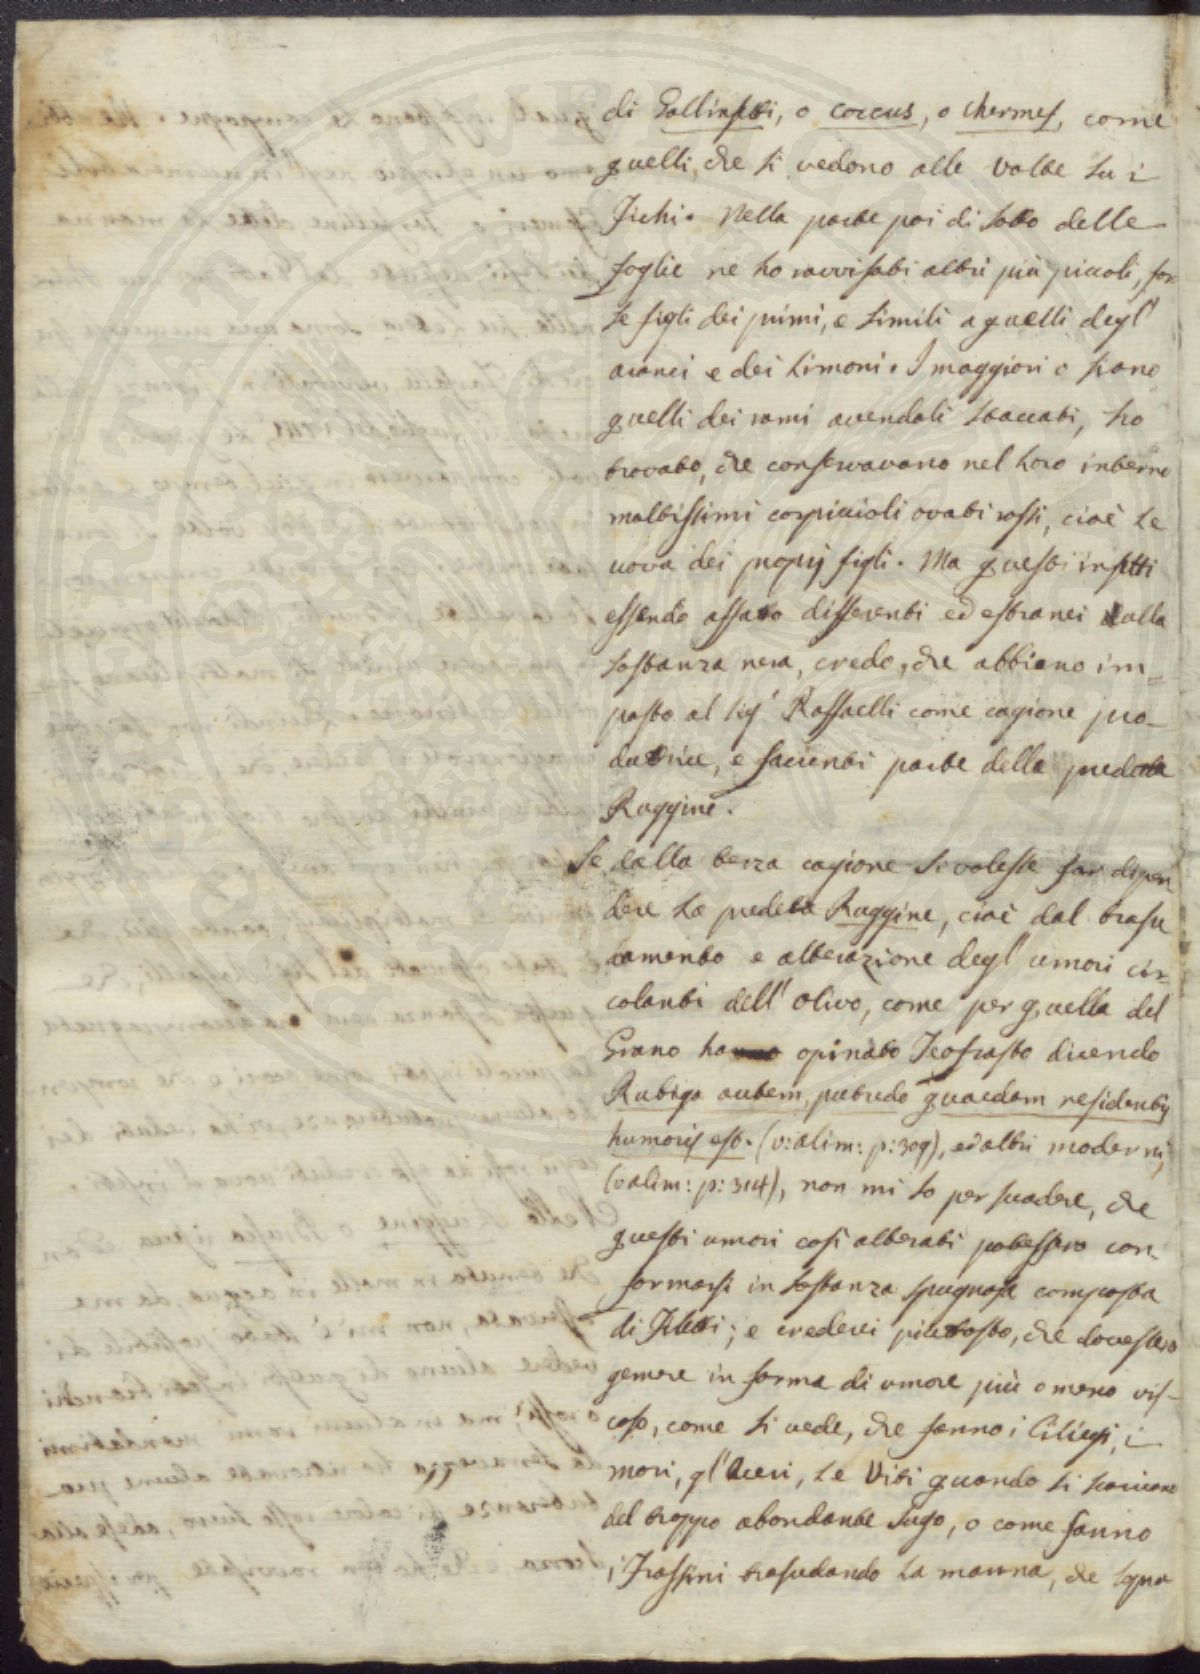 di Gallinsetti, o coccus, o chermes, come
quelli, che si vedono alle volte su i
Fichi. Nella parte poi di sotto delle
foglie ne ho ravvisati altri più piccoli, for
se figli dei primi, e simili a quelli degl'
aranci e dei Limoni. I maggiori o siano
quelli dei rami avendoli staccati, ho
trovato, che conservavano nel loro interno
moltissimi corpicioli ovati rossi, cioè le
uova dei proprij figli. Ma questi insetti
essendo affatto differenti ed estranei dalla
sostanza nera, credo, che abbiano im=
posto al Sig.r Raffaelli come cagione pro-
duttrice, e facienti parte della predetta
Ruggine.
Se dalla terza cagione si volesse far dipen-
dere la predetta Ruggine, cioè dal trasu
damento e alterazione degl'umori cir-
colanti dell'olivo, come per quella del
Grano ha opinato Teofrasto dicendo
Rubigo autem putredo quaedam residentis
humoris est. (v: alim: p: 309), ed altri moderni,
(v alim: p: 314), non mi so persuadere, che
questi umori così alterati potessero con-
formarsi in sostanza spugnosa composta
di Filetti; e crederei piuttosto, che dovessero
gemere in forma di umore più o meno vis-
coso, come si vede, che fanno i Ciliegi, i
mori, gl'Aceri, le Viti quando si scaricano
del troppo abondante sugo, o come fanno
i Frassini trasudando la manna, che sopra